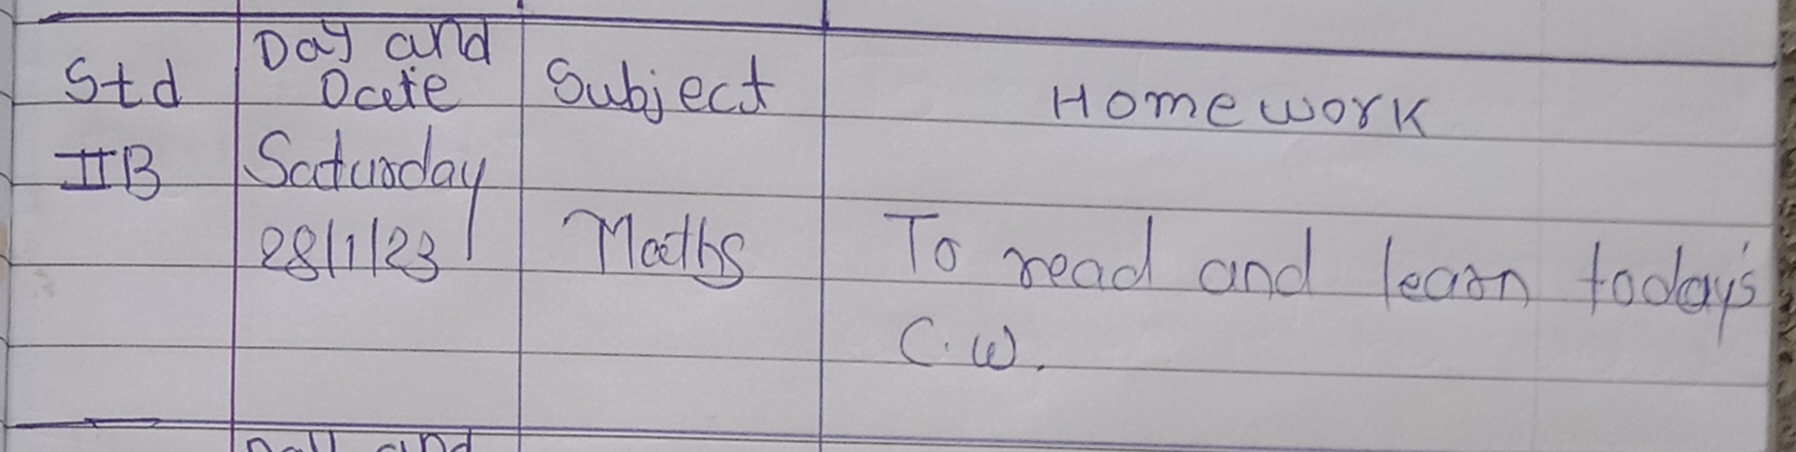 Std Day and Date Subject Homework
IIB Saturday
28/1/23 Maths To read and learn today's
C.W.
Day and